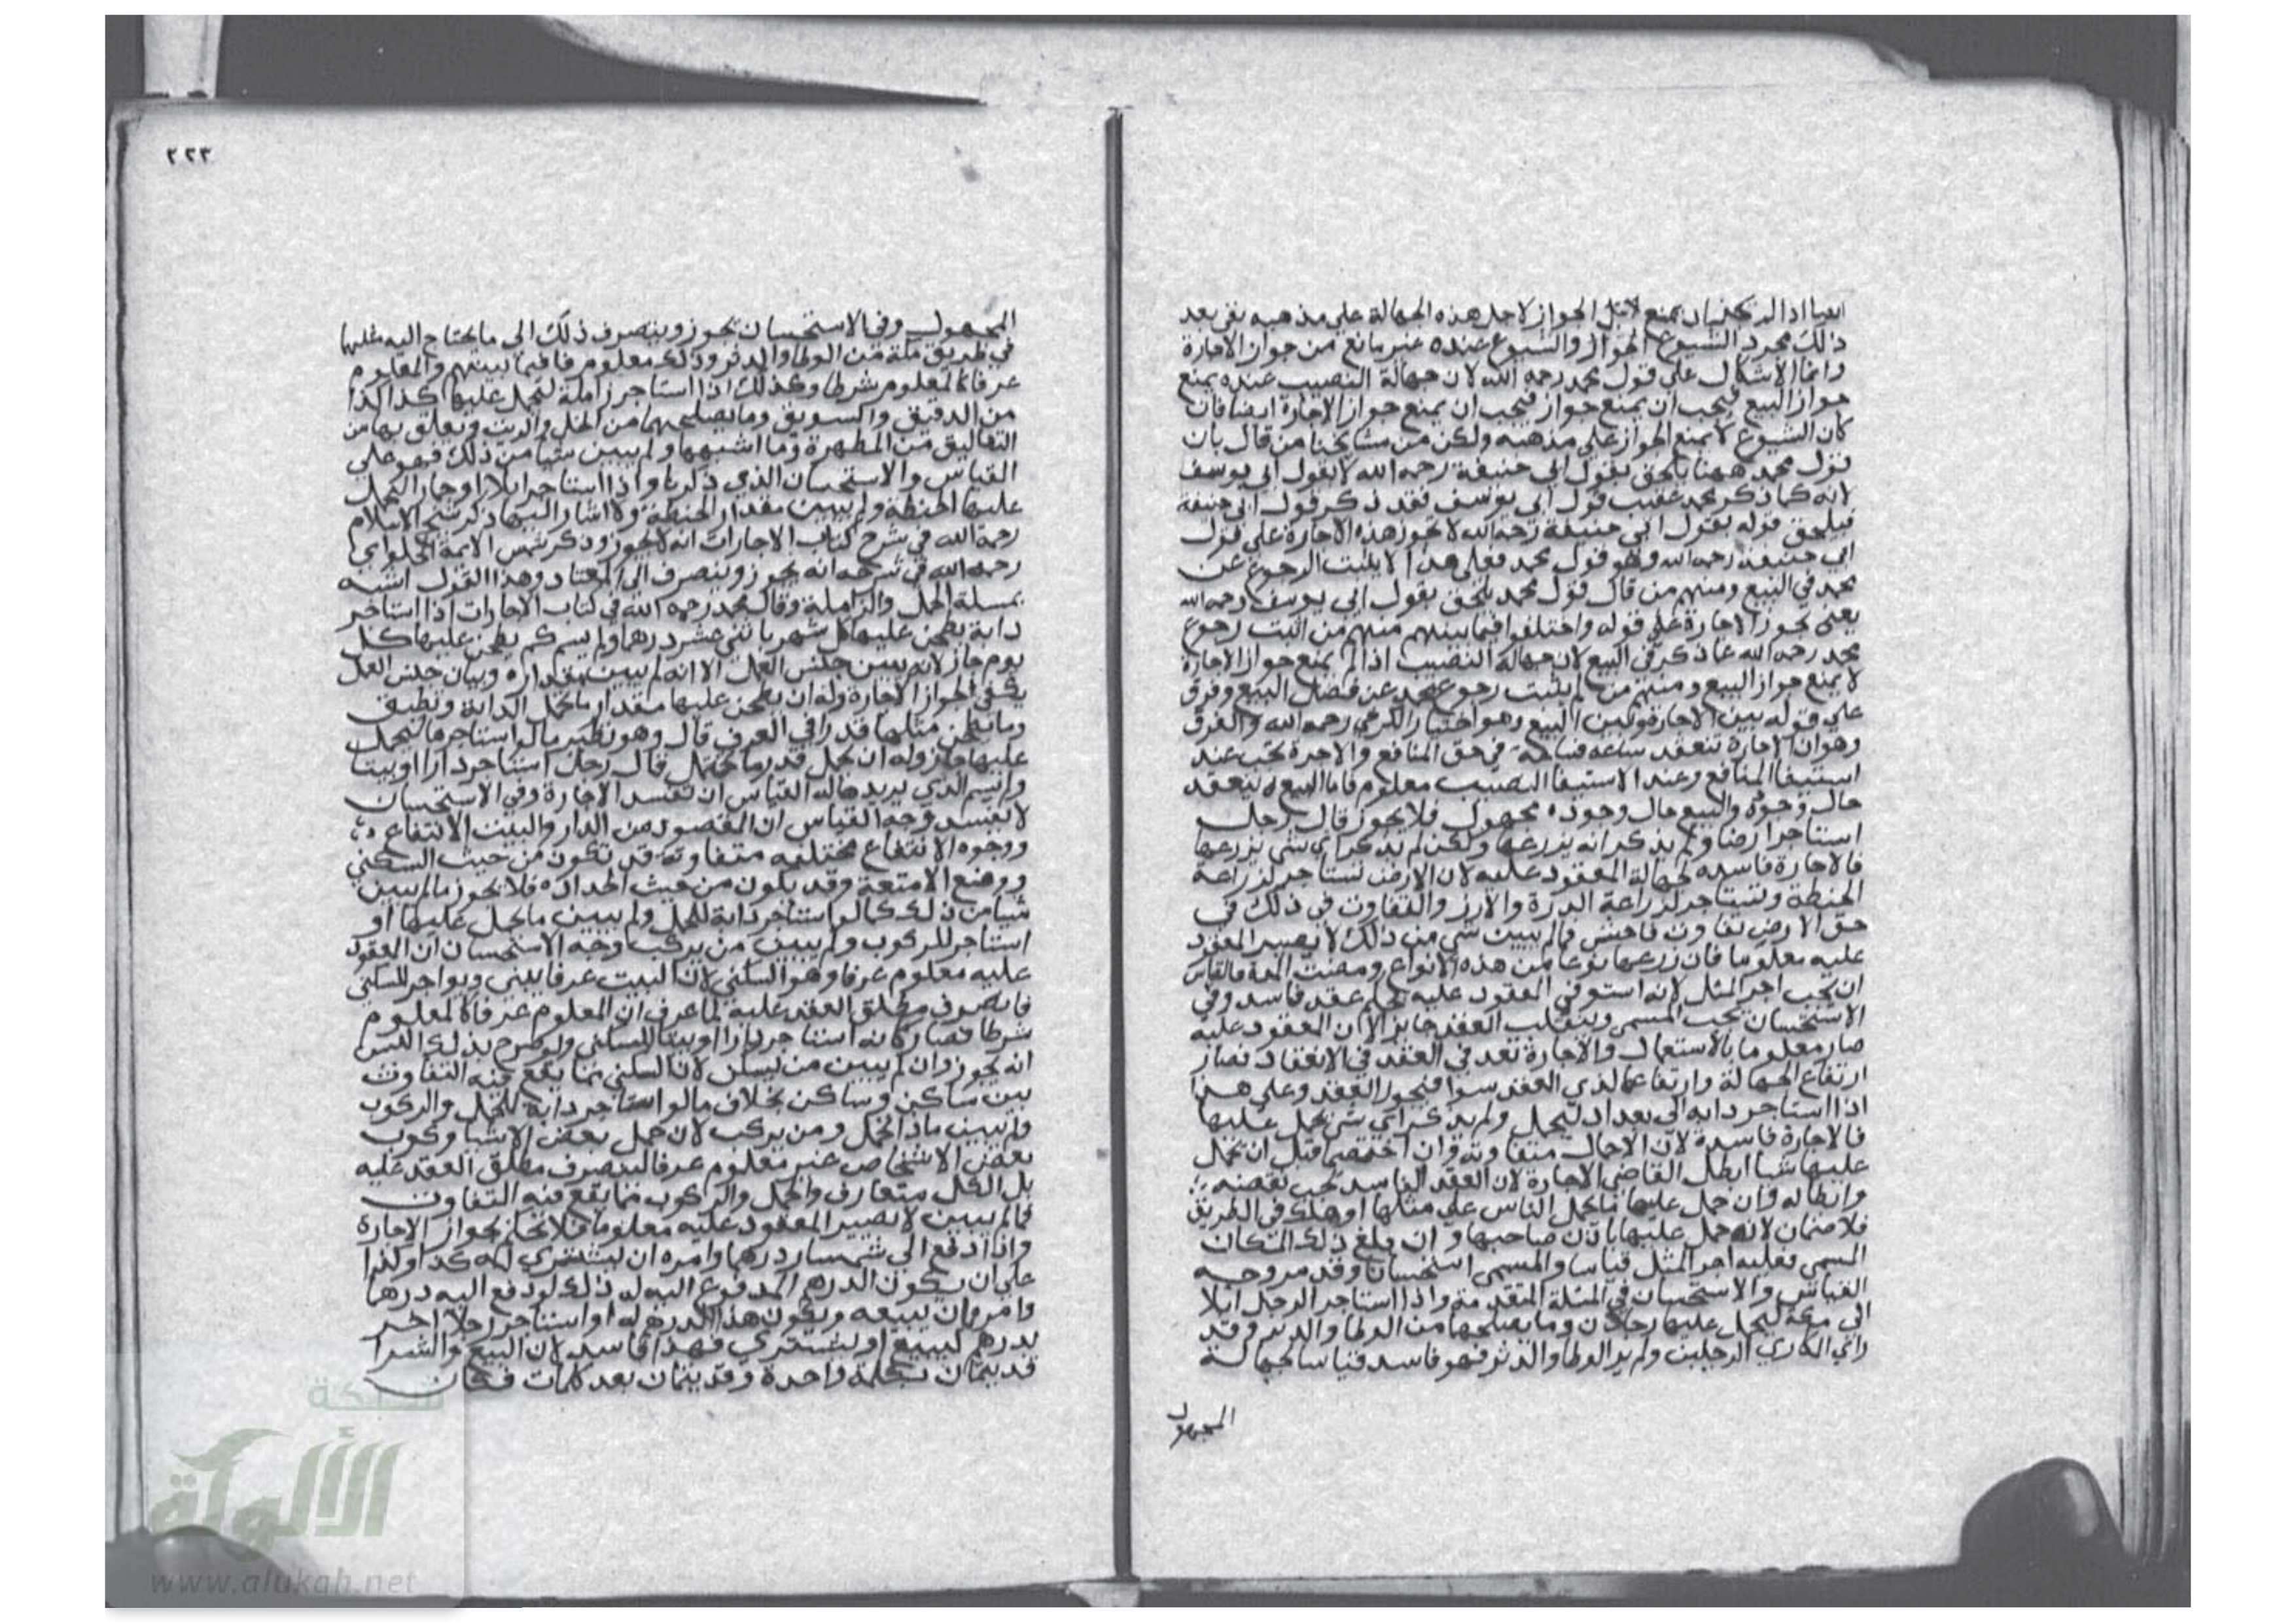 ايضا اذا لم يكن ان يمنع الجواز لاجل هذه الجهالة على مذهبه بقي بعد
ذلك مجرد الشيوع والشيوع عنده غير مانع من جواز الاجارة
وانما الاشكال على قول محمد رحمه الله لان جهالة النصيب عنده يمنع
جواز البيع فيجب ان يمنع جواز فيجب ان يمنع جواز الاجارة ايضا فان
كان الشيوع لا يمنع الجواز على مذهبه ولكن من مشايخنا من قال بان
قول محمد ههنا يلحق بقول ابي حنيفة رحمه الله لا بقول ابي يوسف
لانه كما ذكر محمد عقيب قول ابي يوسف فقد ذكر قول ابي حنيفة
فيلحق قوله بقول ابي حنيفة رحمه الله لا تجوز هذه الاجارة على قول
ابي حنيفة رحمه الله وهو قول محمد فعلى هذا لا يثبت الرجوع عن
محمد في البيع ومنهم من قال قول محمد يلحق بقول ابي يوسف رحمه الله
يعني تجوز الاجارة على قوله واختلفوا فيما بينهم منهم من اثبت رجوع
محمد رحمه الله عما ذكر في البيع لان جهالة النصيب اذا لم يمنع جواز الاجارة
لا يمنع جواز البيع ومنهم من لم يثبت رجوع محمد عن فصل البيع وفرق
على قوله بين الاجارة وبين البيع وهو اختيار الكرخي رحمه الله والفرق
وهو ان الاجارة تنعقد ساعه فساعة في حق المنافع والاجرة تجب عند
استيفا المنافع وعند الاستيفا النصيب معلوم فاما البيع ينعقد
حال وجوده والبيع حال وجوده مجهول فلا يجوز قال رجل
استاجر ارضا ولم يذكر انه يزرعها ولكن لم يذكر اي شي يزرعها
فالاجارة فاسده لجهالة المعقود عليه لان الارض تستاجر لزراعة
الحنطة وتستاجر لزراعة الدرة والارز والتفاوت في ذلك في
حق الارض تفاوت فاحش فما لم يبين شي من ذلك لا يصير المعقود
عليه معلوما فان زرعها نوعا من هذه الانواع ومضت المدة فالقياس
ان يجب اجر المثل لانه استوفى المعقود عليه بحكم عقد فاسد وفي
الاستحسان يجب المسمى وينقلب العقد جايزا لان المعقود عليه
صار معلوما بالاستعمال والاجارة تعد في العقد في الانعقاد فصار
ارتفاع الجهالة وارتفاعها لدي العقد سوا فيجوز العقد وعلى هذا
اذا استاجر دابه الى بغداد ليحمل ولم يذكر اي شي يحمل عليها
فالاجارة فاسدة لان الاحمال متفاوتة وان اختصما قبل ان يحمل
عليها شيا ابطل القاضي الاجارة لان العقد الفاسد يجب نقضه
وابطاله وان حمل عليها ما يحمل الناس على مثلها او هلك في الطريق
فلا ضمان لانه حمل عليها باذن صاحبها وان بلغ ذلك المكان
المسمى فعليه اجر المثل قياسا والمسمى استحسانا وقد مر وجه
القياس والاستحسان في المسئلة المتقدمة واذا استاجر الرجل ابلا
الى مكة ليحمل عليها رجلان وما يصلحها من الوطا والدثر وقد
راي الكاري الرجلين ولم ير الوطا والدثر فهو فاسد قياسا لجهالة
المجهول
٢٢٣
المجهول وفي الاستحسان يجوز وينصرف ذلك الى ما يحتاج اليه مثلهما
في طريق مكة من الوطا والدثر وذلك معلوم فافيما بينهم والمعلوم
عرفا كالمعلوم شرطا وكذلك اذا استاجر زاملة ليحمل عليها كذا كذا
من الدقيق والسويق وما يصلحهما من الخل والزيت ويعلق بها من
التعاليق من المطهرة وما اشبهها ولم يبين شيا من ذلك فهو على
القياس والاستحسان الذي ذكرنا واذا استاجر ابلا او حمارا ليحمل
عليها الحنطة ولم يبين مقدار الحنطة ولا اشار اليها ذكر شيخ الاسلام
رحمه الله في شرح كتاب الاجارات انه لا يجوز وذكر شمس الايمة الحلواي
رحمه الله في شرحه انه يجوز وينصرف الى المعتاد وهذا القول اشبه
بمسلة الحمل والزاملة وقال محمد رحمه الله في كتاب الاجارات اذا استاجر
دابة يطحن عليها كل شهر باثني عشر درهما ولم يسم كم يطحن عليها كل
يوم جاز لانه بين جنس العمل الا انه لم يبين مقداره وبيان جنس العمل
يكفي لجواز الاجارة وله ان يطحن عليها مقدار ما تحمل الدابة وتطيق
وما يطحن مثلها قدرا في العرف قال وهو نظير ما لو استاجرها ليحمل
عليها جاز وله ان يحمل قدر ما تحتمل قال رجل استاجر دارا او بيتا
ولم يسم الذي يريد هاله القياس ان تفسد الاجارة وفي الاستحسان
لا يفسد وجه القياس ان المقصود من الدار والبيت الانتفاع
ووجوه الانتفاع مختلفه متفاوتة قد تكون من حيث السكني
ووضع الامتعة وقد يكون من حيث الحدادة فلا يجوز ما لم يبين
شيا من ذلك كما لو استاجر دابة للحمل ولم يبين ما يحمل عليها او
استاجر للركوب ولم يبين من يركب وجه الاستحسان ان المعقود
عليه معلوم عرفا وهو السكني لان البيت عرفا يبنى ويواجر للسكني
فانصرف مطلق العقد عليه لما عرف ان المعلوم عرفا كالمعلوم
شرطا فصار كانه استاجر دارا او بيتا للسكني ولو صرح بذلك اليس
انه يجوز وان لم يبين من يسكن لان السكني مما يقع فيه التفاوت
بين ساكن وساكن بخلاف ما لو استاجر دابة للحمل والركوب
ولم يبين ماذا يحمل ومن يركب لان حمل بعض الاشيا وركوب
بعض الاشخاص غير معلوم عرفا لينصرف مطلق العقد عليه
بل الكل متعارف والحمل والركوب مما يقع فيه التفاوت
فما لم يبين لا يصير المعقود عليه معلوما فلا يحكم بجواز الاجارة
واذا دفع الى سمسار درهما وامره ان يشتري له كذا وكذا
على ان يكون الدرهم المدفوع اليه له ذلك لو دفع اليه درهما
وامره بان يبيعه ويكون هذا الدرهم له او استاجر رجلا اخر
بدرهم ليبيع او ليشتري فهذا فاسد لان البيع والشرا
قد يتمان بكلمة واحدة وقد يتمان بعد كلمات فكان
شبكة
الألوكة
www.alukah.net